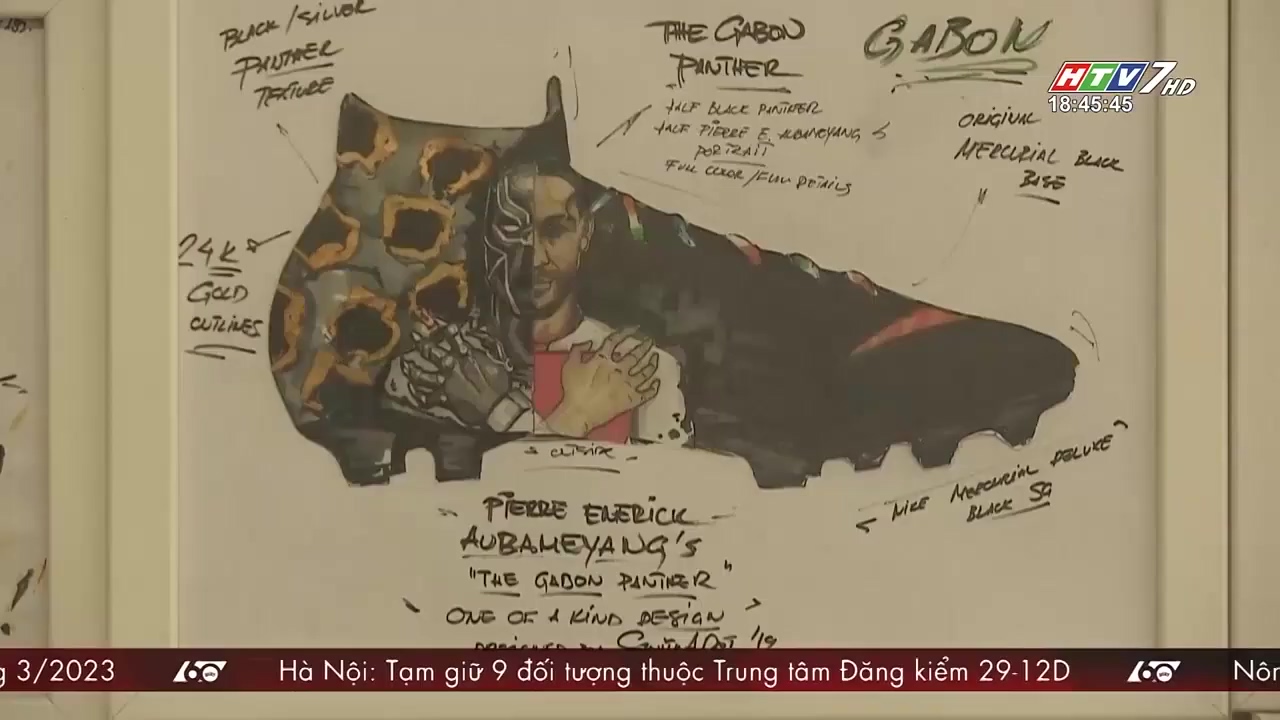 BLACK/SILVER
PANTHER
TEXTURE
THE GABON
PANTHER
HALF BLACK PANTHER
HALF PIERRE E. AUBAMEYANG
PORTRAIT
FULL COLOR/FULL DETAILS
GABON
HTV7 HD
18:45:45
ORIGINAL
MERCURIAL BLACK
BASE
24K
GOLD
OUTLINES
OUTSIDE
NIKE MERCURIAL DELUXE
BLACK SG
PIERRE EMERICK
AUBAMEYANG'S
"THE GABON PANTHER"
ONE OF A KIND DESIGN
DESIGNED BY '19
g 3/2023 60 giây Hà Nội: Tạm giữ 9 đối tượng thuộc Trung tâm Đăng kiểm 29-12D 60 giây Nôn